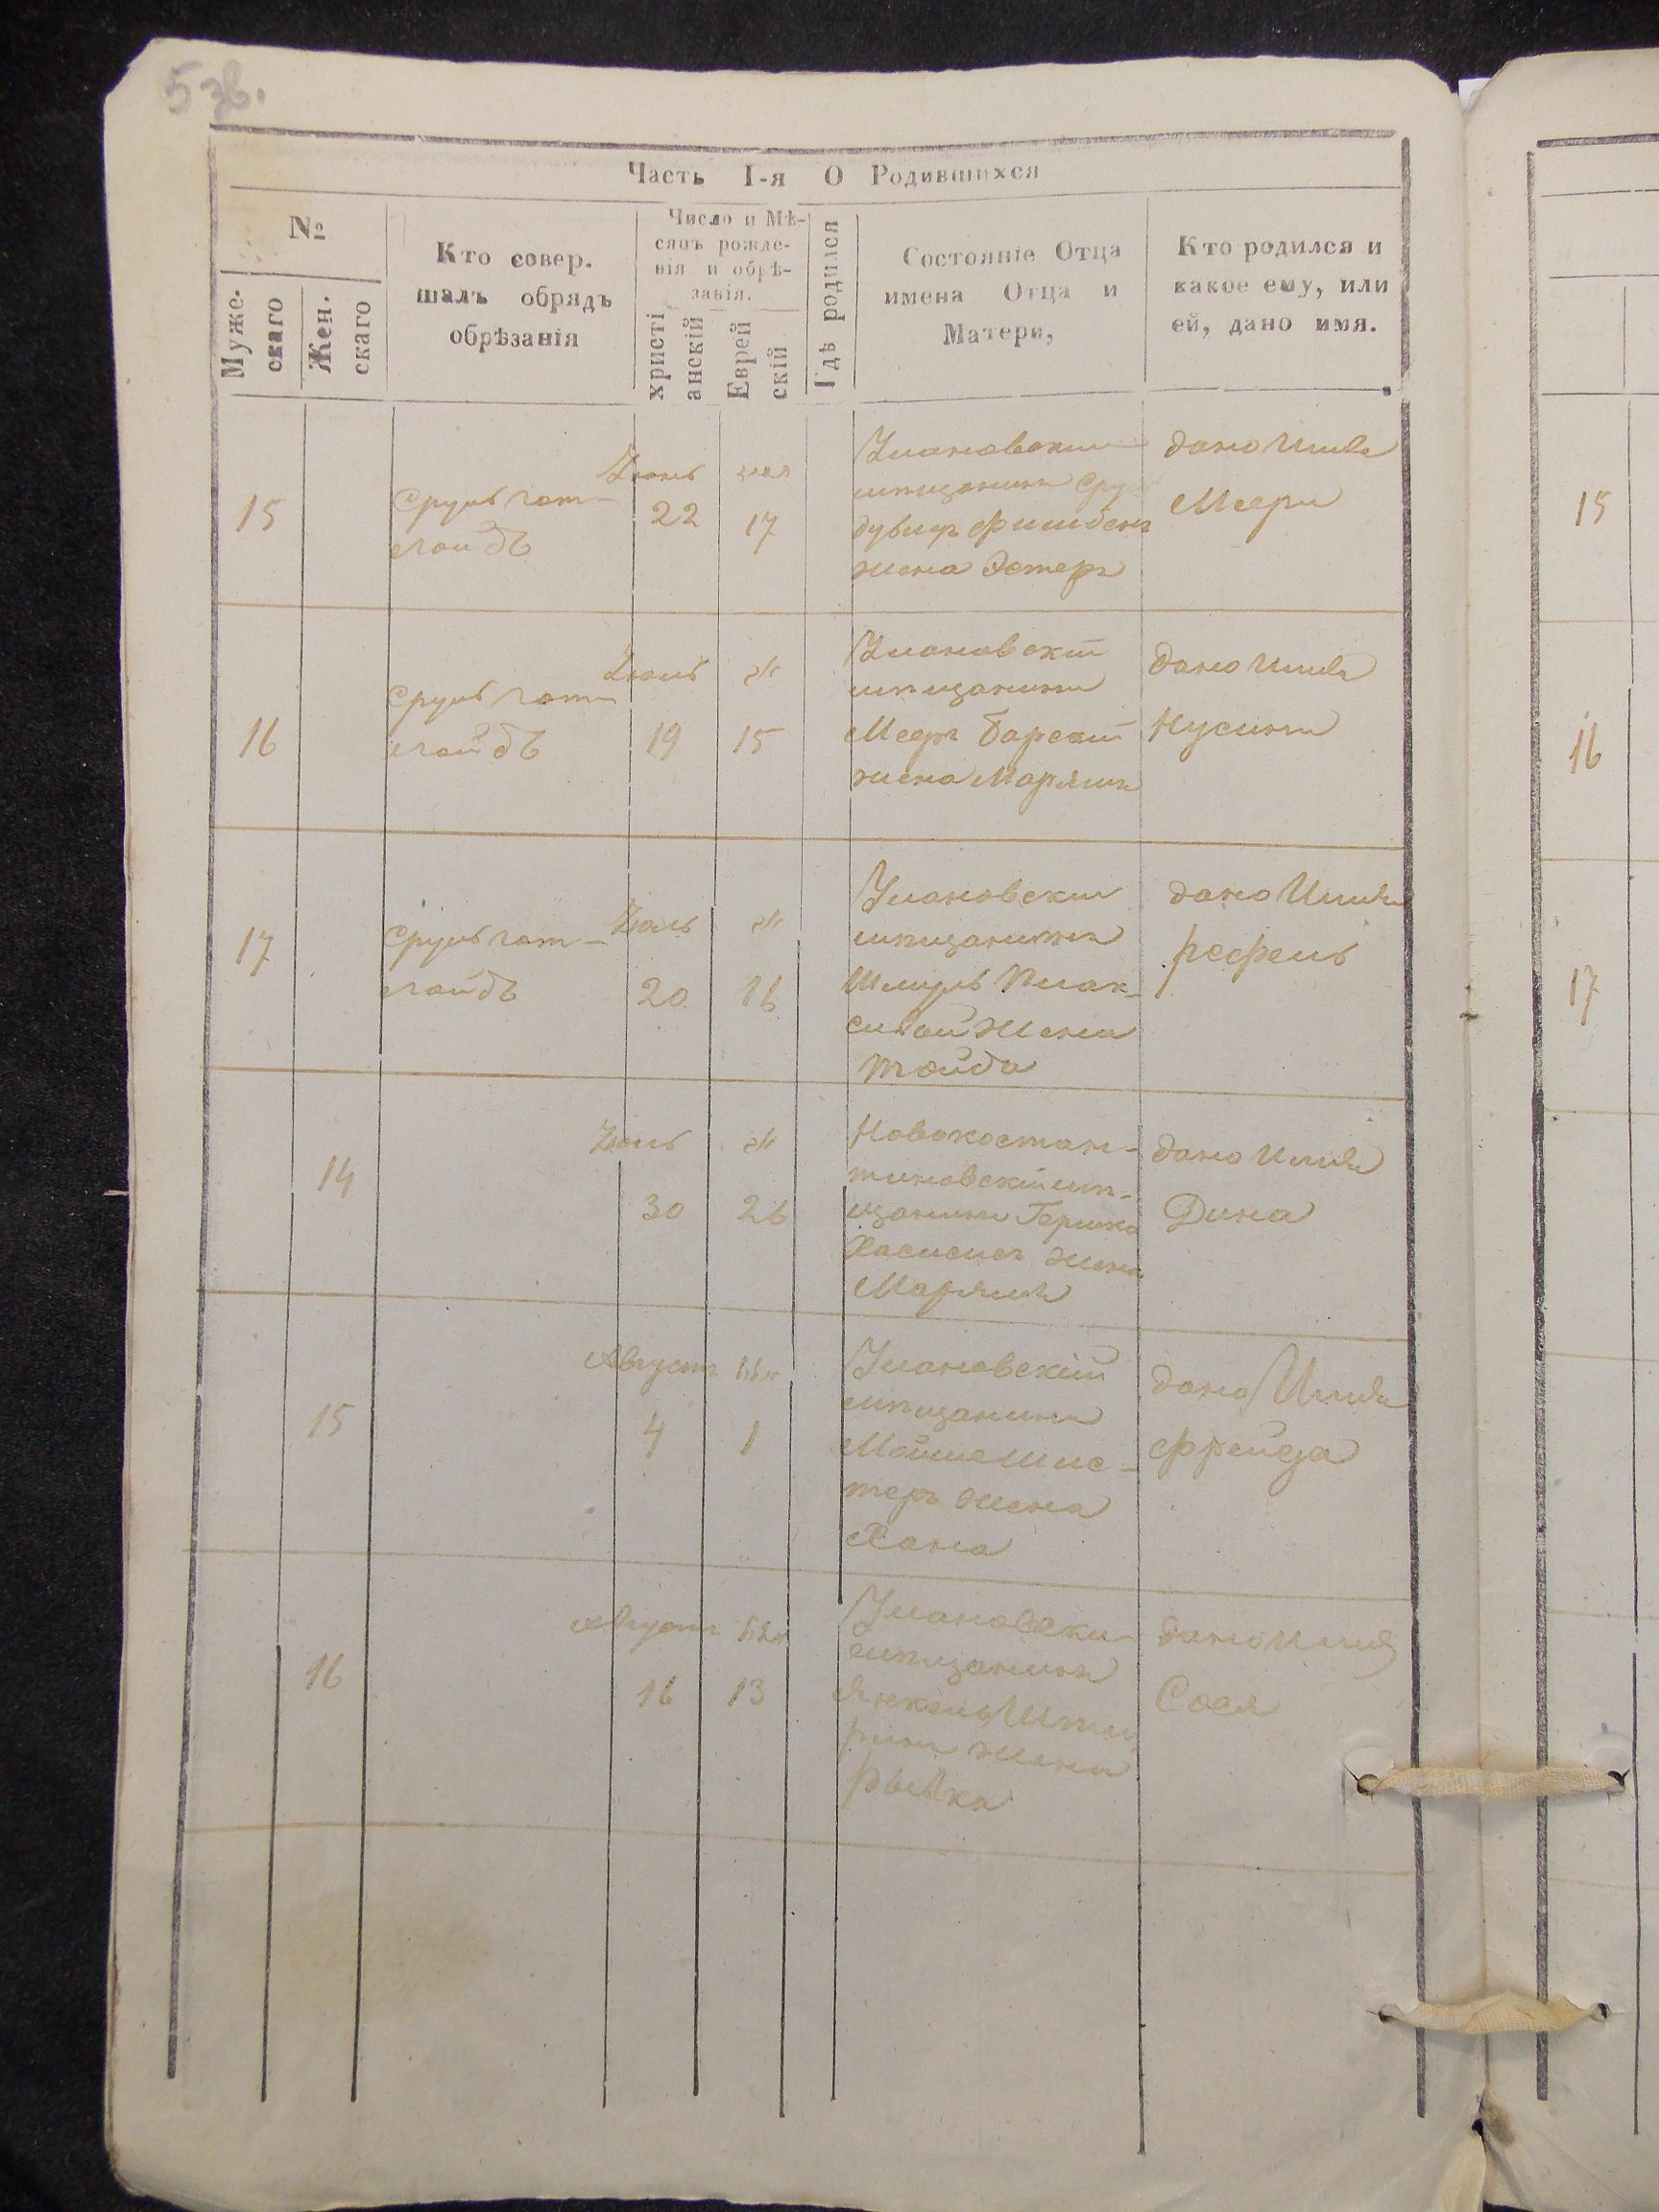 5 зв.
Часть I-я О Родившихся
№
Муже-
скаго
Жен.
скаго
Кто совер.
шалъ обрядъ
обрѣзанія
Число и Мѣ-
сяцъ рожде-
нія и обрѣ-
занія.
христі
анскій
Еврей
скій
Гдѣ родился
Состояніе Отца
имена Отца и
Матери,
Кто родился и
какое ему, или
ей, дано имя.
15
Сруль гот-
лойбъ
Июнь
22
17
Улановский
мещанинъ Сру
дувидъ Фишбенъ
жена Эстеръ
дано Имя
Мееръ
15
16
Сруль гот-
лойбъ
Июль
19
15
Улановскій
мещанинъ
Мееръ Барскій
жена Марямъ
дано Имя
Нусинъ
16
17
Сруль гот-
лойбъ
Июль
20
16
Улановский
мещанинъ
Шмуль Плак-
сивой жена
Тойба
дано Имя
рефель
17
14
Июль
30
26
Новокостан-
тиновскій ме-
щанинъ Гершко
жена
Марямъ
дано Имя
Дина
15
Августъ
4
1
Улановскій
мещанинъ
Мойше Шис-
теръ жена
Хана
дано Имя
Фрейда
16
Августъ
16
13
Улановски
мещанинъ
Янкель
жена
Рывка
дано Имя
Сося